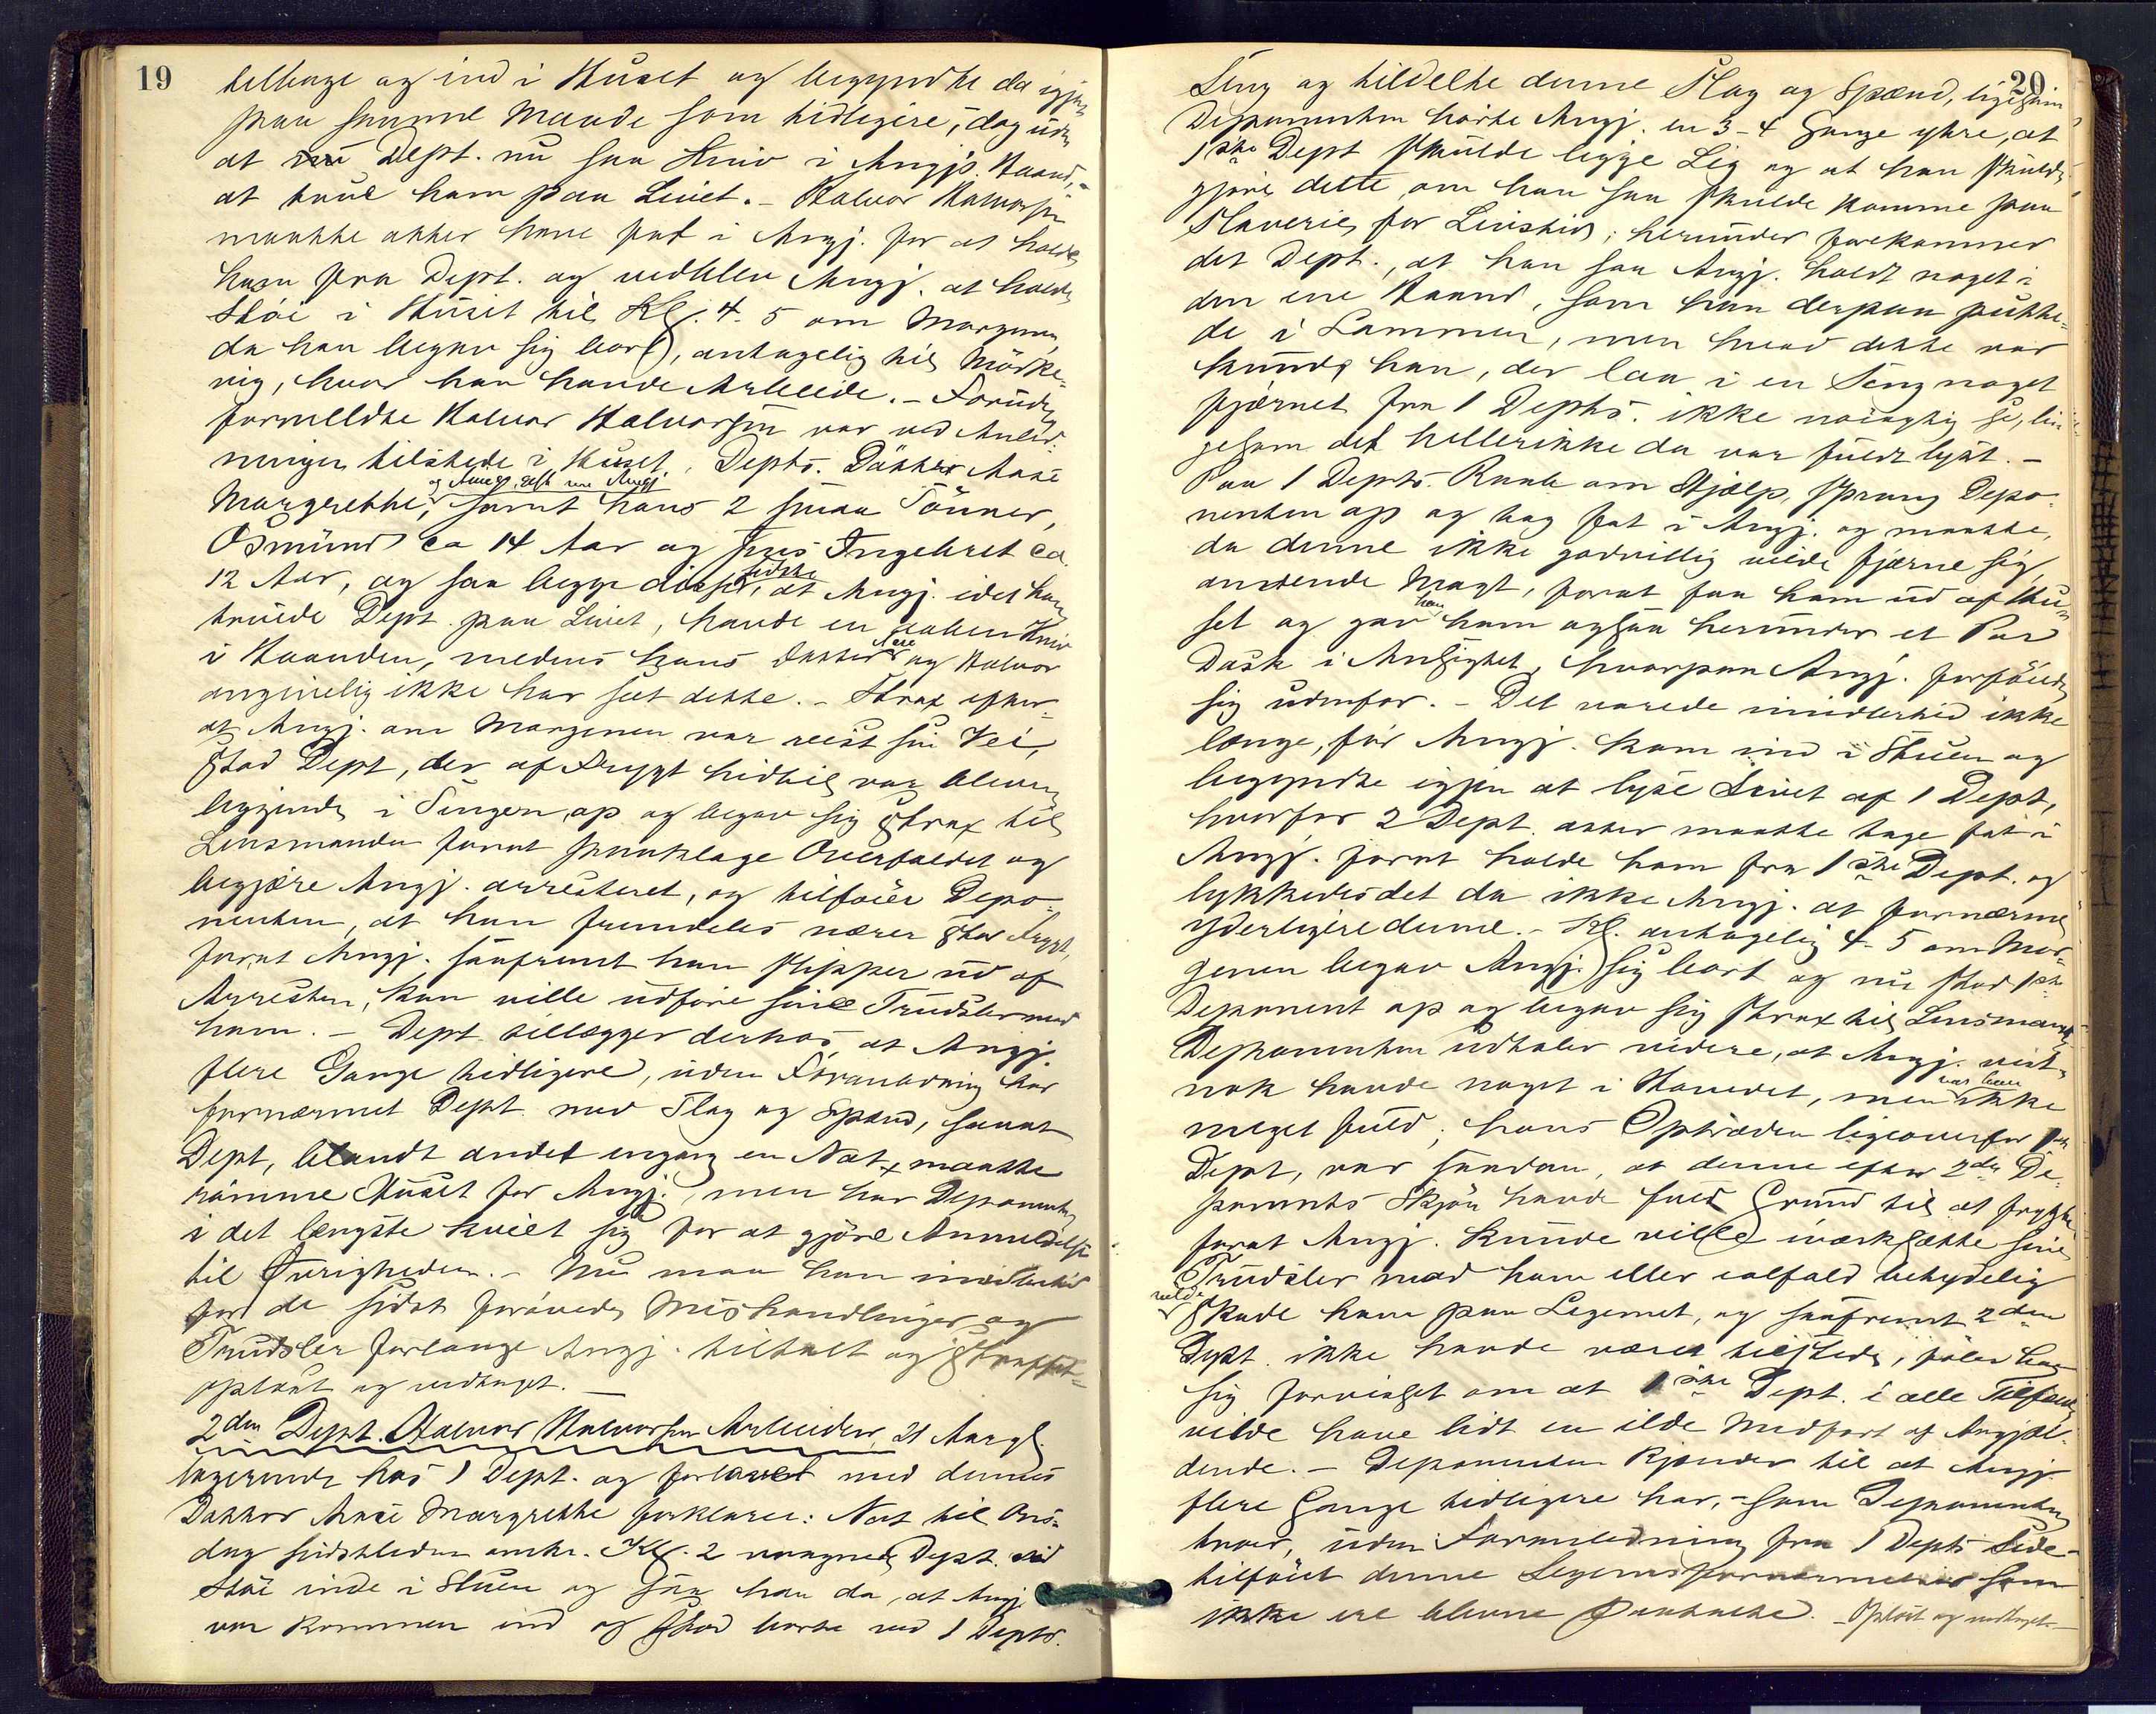 19
tilbage og ind i Huset og begyndte da igjen
paa samme Maade som tidligere, dog uden
at Dept. nu saa Kniv i Angj's. Haand,
at true ham paa Livet. – Halvor Halvorsen
maatte atter have fat i Angj. for at holde
ham fra Dept. og vedblev Angj. at holde
Støi i Huset til Kl. 4-5 om Morgenen,
da han begav sig bort, antagelig til Mörke-
vig, hvor han havde Arbeide. – Foruden
formeldte Halvor Halvorsen var ved Anled-
ningen tilstede i Huset, Depts. Datter Aase
Margrethe, samt hans 2 smaa Sönner,
Osmund ca 14 Aar og Jens Ingebret ca.
12 Aar, og saa begge disse sidste, at Angj. idet han
truede Dept. paa Livet, havde en aaben Kniv
i Haanden, medens hans Datter og Halvor
angivelig ikke har seet dette. – Strax efter
at Angj. om Morgenen var reist sin Vei,
stod Dept, der af Frygt hidtil var bleven
liggende i Sengen, op og begav sig strax til
Lensmanden forat paaklage Overfaldet og
begjære Angj. arresteret, og tilföier Depo-
nenten, at han fremdeles nærer stor Frygt,
forat Angj. saafremt han slipper ud af
Arresten, kan ville udföre sine Trudsler mod
ham. – Dept tillægger derhos, at Angj.
flere Gange tidligere, uden Foranledning har
fornærmet Dept. med Slag og Spænd, samt
Dept, blandt andet engang en Nat, maatte
römme Huset for Angj., men har Deponenten
i det længste kviet sig for at gjöre Anmeldelse
til Øvrigheden. – Nu maa han imidlertid
for de sidst forövede Mishandlinger og
Trudsler forlange Angj. tiltalt og straffet. –
oplæst og vedtaget. –
2den Dept. Halvor Halvorsen Arbeider, 21 Aar gl.
logerende hos 1 Dept. og forlovet med dennes
Datter Aase Margrethe forklarer: Nat til Ons-
dag sidstleden omtr. Kl. 2 vaagnede Dept. ved
Støi inde i Stuen og saa han da, at Angj.
var kommen ind og stod borte ved 1 Depts.
20
Seng og tildelte denne Slag og Spænd, ligesom
Deponenten hörte Angj. en 3-4 Gange ytre, at
1ste Dept skulde ligge Lig og at han skulde
gjöre dette om han saa skulde komme paa
Slaveriet for Livstid; herunder forekommer
det Dept., at han saa Angj. holdt noget i
den ene Haand, som han derpaa putte-
de i Lommen, men hvad dette var
kunde han, der laa i en Seng noget
fjernet fra 1 Depts. ikke nöiagtig se, li-
gesom det hellerikke da var fuldt lyst. –
Paa 1 Depts. Raab om Hjælp, sprang Depo-
nenten op og tog fat i Angj. og maatte,
da denne ikke godvillig vilde fjerne sig,
anvende Magt, forat faa ham ud af Hu-
set og gav han ham ogsaa herunder et Par
Dask i Ansigtet, hvorpaa Angj. forföiede
sig udenfor. – Det varede imidlertid ikke
længe, för Angj. kom ind i Stuen og
begyndte igjen at lyse Livet af 1 Dept,
hvorfor 2 Dept. atter maatte tage fat i
Angj. forat holde ham fra 1ste Dept. og
lykkedes det da ikke Angj. at fornærme
yderligere denne. – Kl. antagelig 4-5 om Mor-
genen begav Angj. sig bort og nu stod 1ste
Deponent op og begav sig strax til Lensmand.
Deponenten udtaler videre, at Angj. vist-
nok havde noget i Hovedet, men var han ikke
meget fuld; hans Optræden ligeoverfor 1ste
Dept, var saadan, at denne efter 2den De-
ponents Skjön havde fuld Grund til at frygte
forat Angj. kunde ville iværksætte sine
Trudsler mod ham eller ialfald betydelig
vilde skade ham paa Legemet, og saafremt 2den
Dept. ikke havde været tilstede, föler han
sig forvisset om at 1ste Dept. i alle Tilfælde
vilde have lidt en ilde Medfart af Angjæl-
dende. – Deponenten kjender til at Angj.
flere Gange tidligere har, – som Deponenten
tror, uden Foranledning fra 1 Depts Side –
tilföiet denne Legemsfornærmelser som
ikke ere blevne paatalte. – Oplæst og vedtaget. –